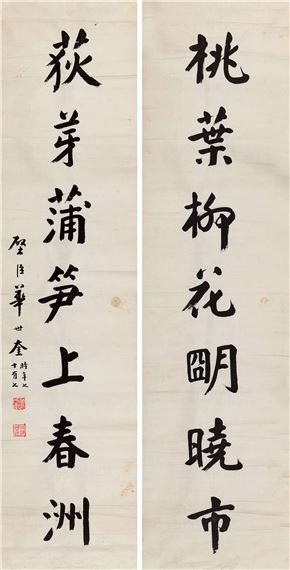 桃葉柳花朙曉市
荻芽蒲笋上春洲
璧臣華世奎時年七十有七